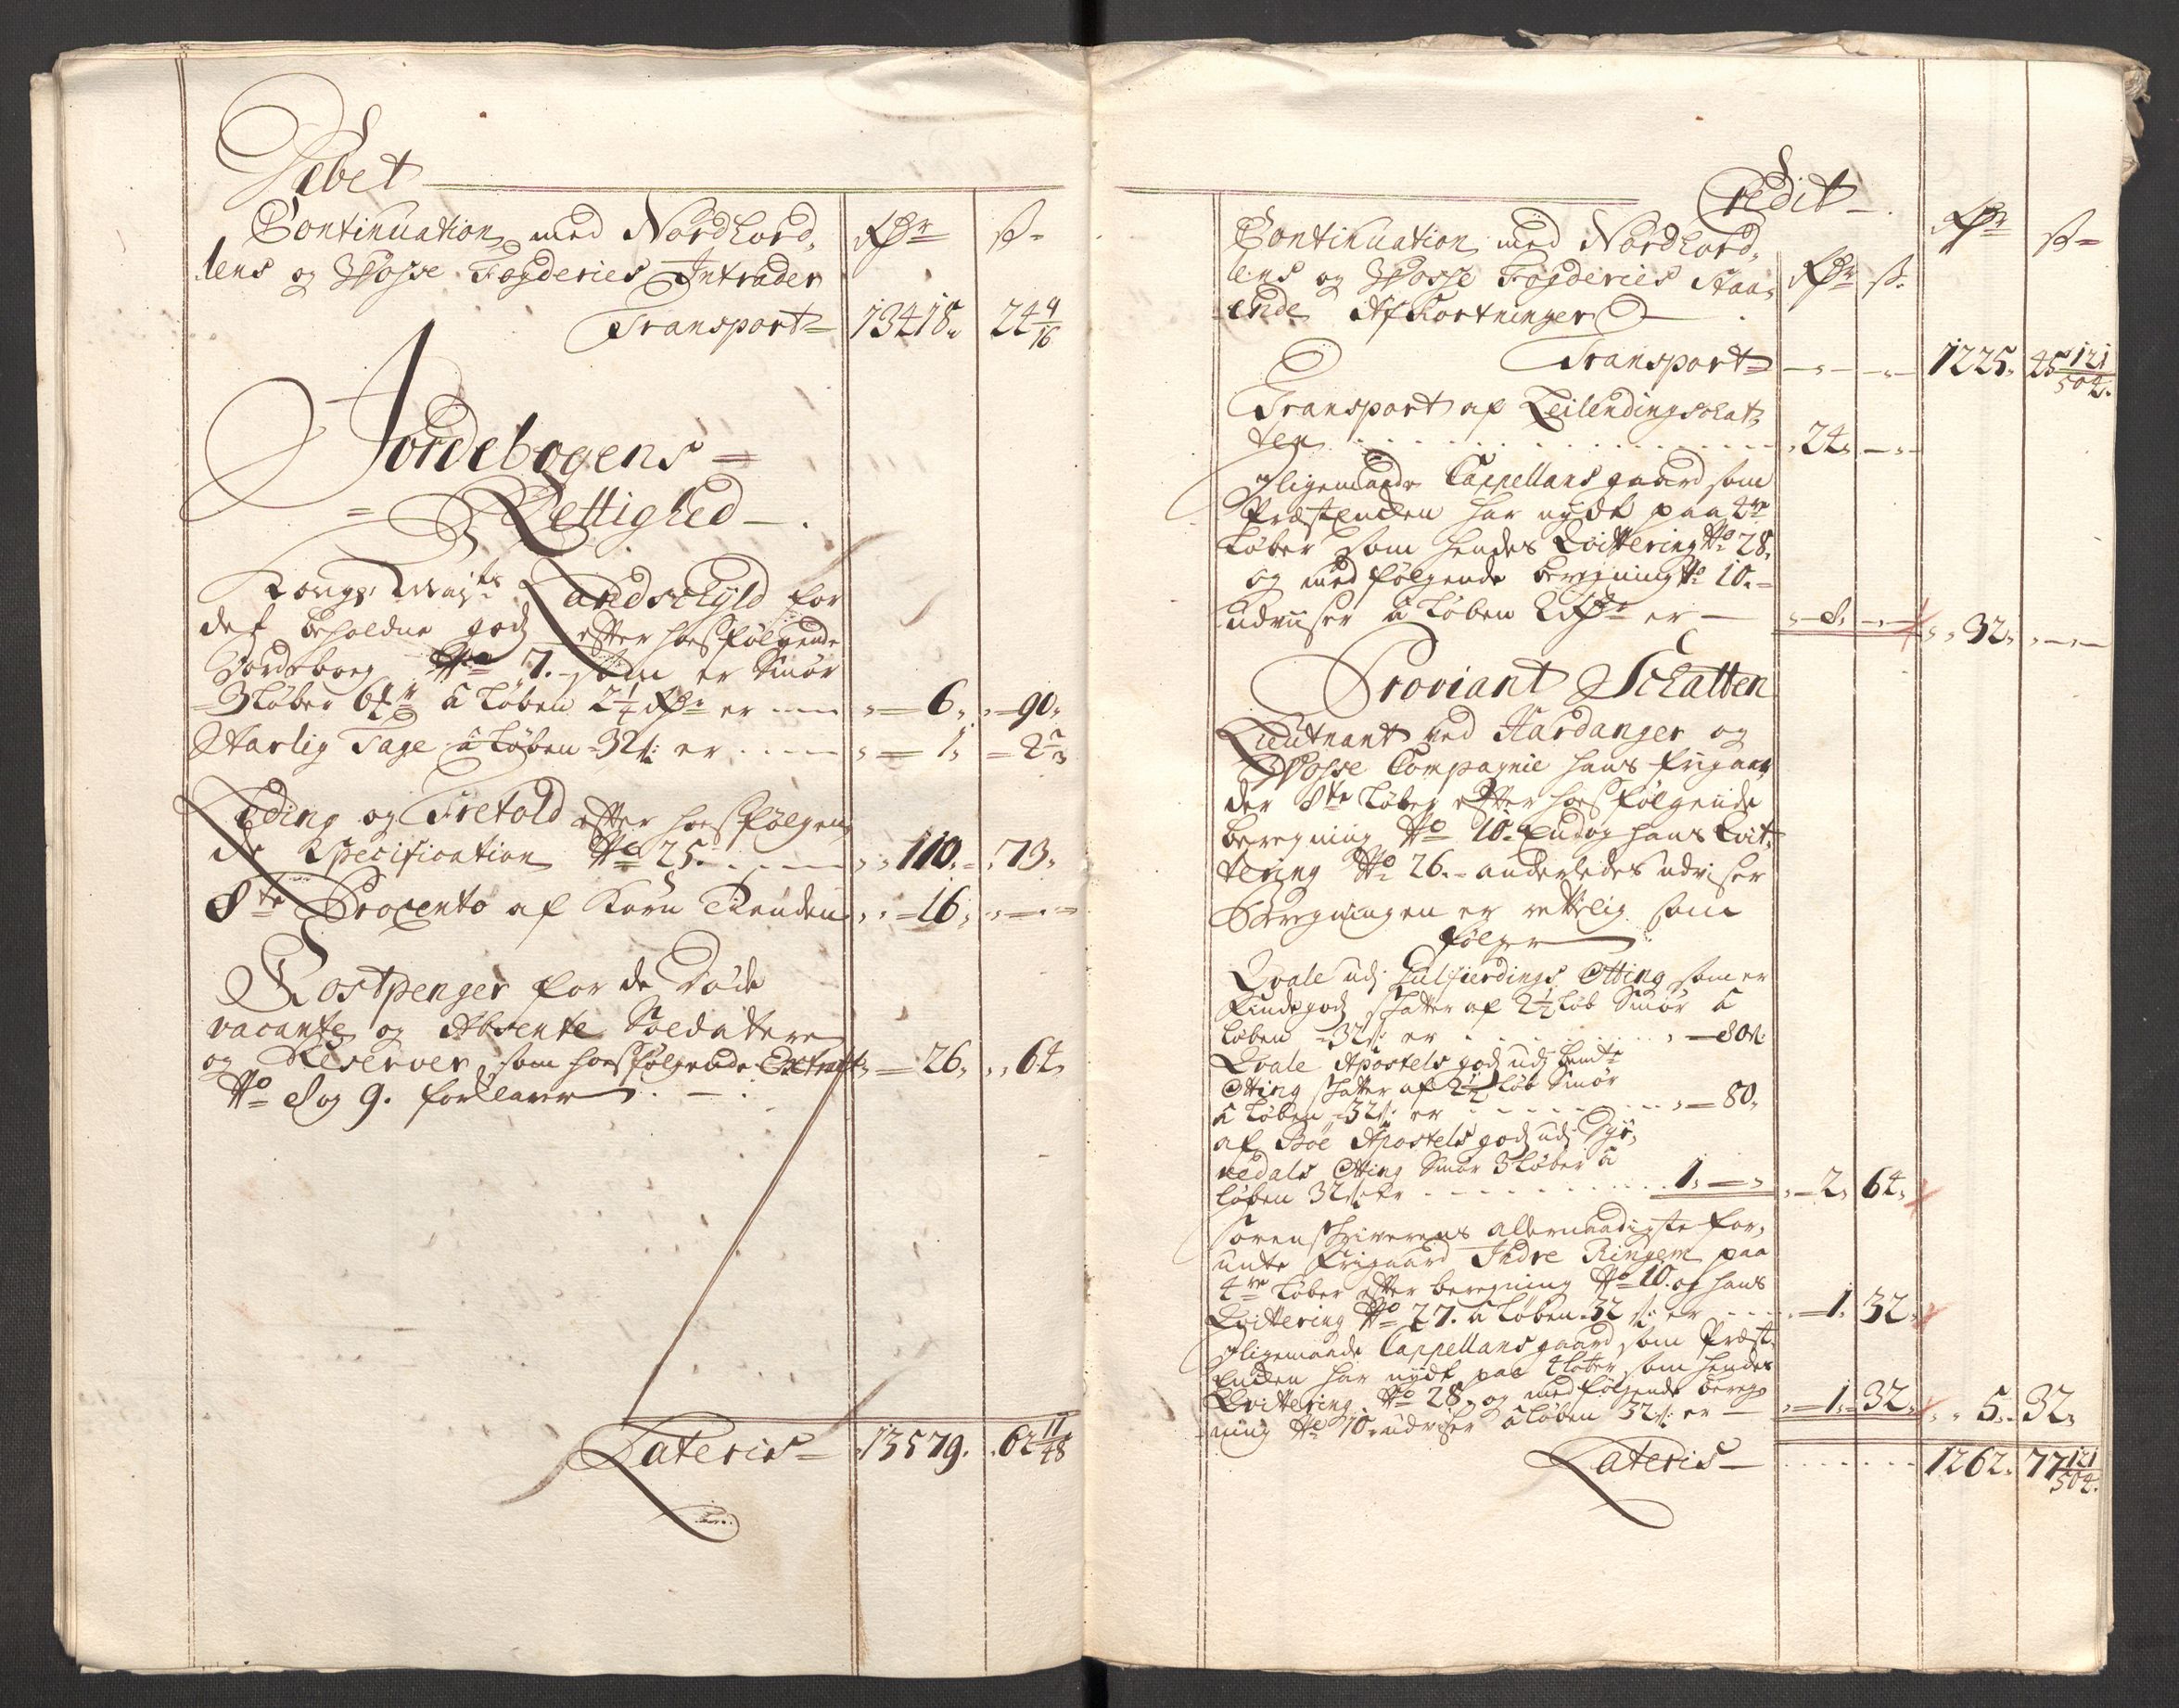 Debet
Continuation med Nordhord,
lens og Wosse Fogderies Intrader
Rdr ß
Transport 13418. 24 9/16
Jordebogens
Rettighed
Kongs: Mayts Landschyld for
des beholdne godz efter hosfølgende
Jordebog No 7. som er Smør
3 Løber 6 à Løben 2 1/4 Rdr er 6. 90.
Aarlig Tage à Løben 32 ß: er 1. 2 2/3
Leding og Fretold efter hosfølgen,
de Specification No 25. 110. 73.
8te Procento af Korn Tienden 16.
Kostpenger for de Døde
vacante og Absente Soldatere
og Reserver som hosfølgende Extract 26. 64.
No 8 og 9. forklarer
Lateris 13579. 62 11/48
Credit
Continuation med Nordhord,
lens og Wosse Fogderies
ende Afkortninger
Rdr ß Rdr ß
Transport 1225. 45 121/504.
Transport af Leilendingschat,
ten 24.
Iligemaade Cappellans gaard som
Præstenden har nydt paa 4re
Løber som hendes Qvittering No 28.
og medfølgende beregning No 10.
udviiser à Løben 2 Rdr er 8. 32.
Proviant Schatten
Lieutnant ved Hardanger og
Wosse Compagnie hans frigaar,
der 8te Løber efter hosfølgende
beregning No 10. Endog hans Qvit,
tering No 26. anderledes udviser
Beregningen er rettelig som
følger
Qvale udj Otting som er
godz schatter af 2 1/2 Løb Smør à
Løben 32 ß: er 80 ß:
Qvale Apostels godz udj
Otting schatter af 2 1/2 Løb Smør
à Løben 32 ß: er 80.
af Bøe Apostels godz udj Dyr,
vedals Otting Smør 3 Løber à
Løben 32 ß: er 1. 2. 64.
Sorenschriverens allernaadigste for,
unte frigaard Indre Ringem paa
4re Løber efter beregning No 10. og hans
Qvittering No 27. à Løben 32 ß: er 1. 32.
Iligemaade Cappellans gaard som Præst,
Enden har nydt paa 4 Løber som hendes
Qvittering No 28. og medfølgende bereg,
ning No 10. udviser à Løben 32 ß: er 1. 32. 5. 32.
Lateris 1262. 77 121/504.